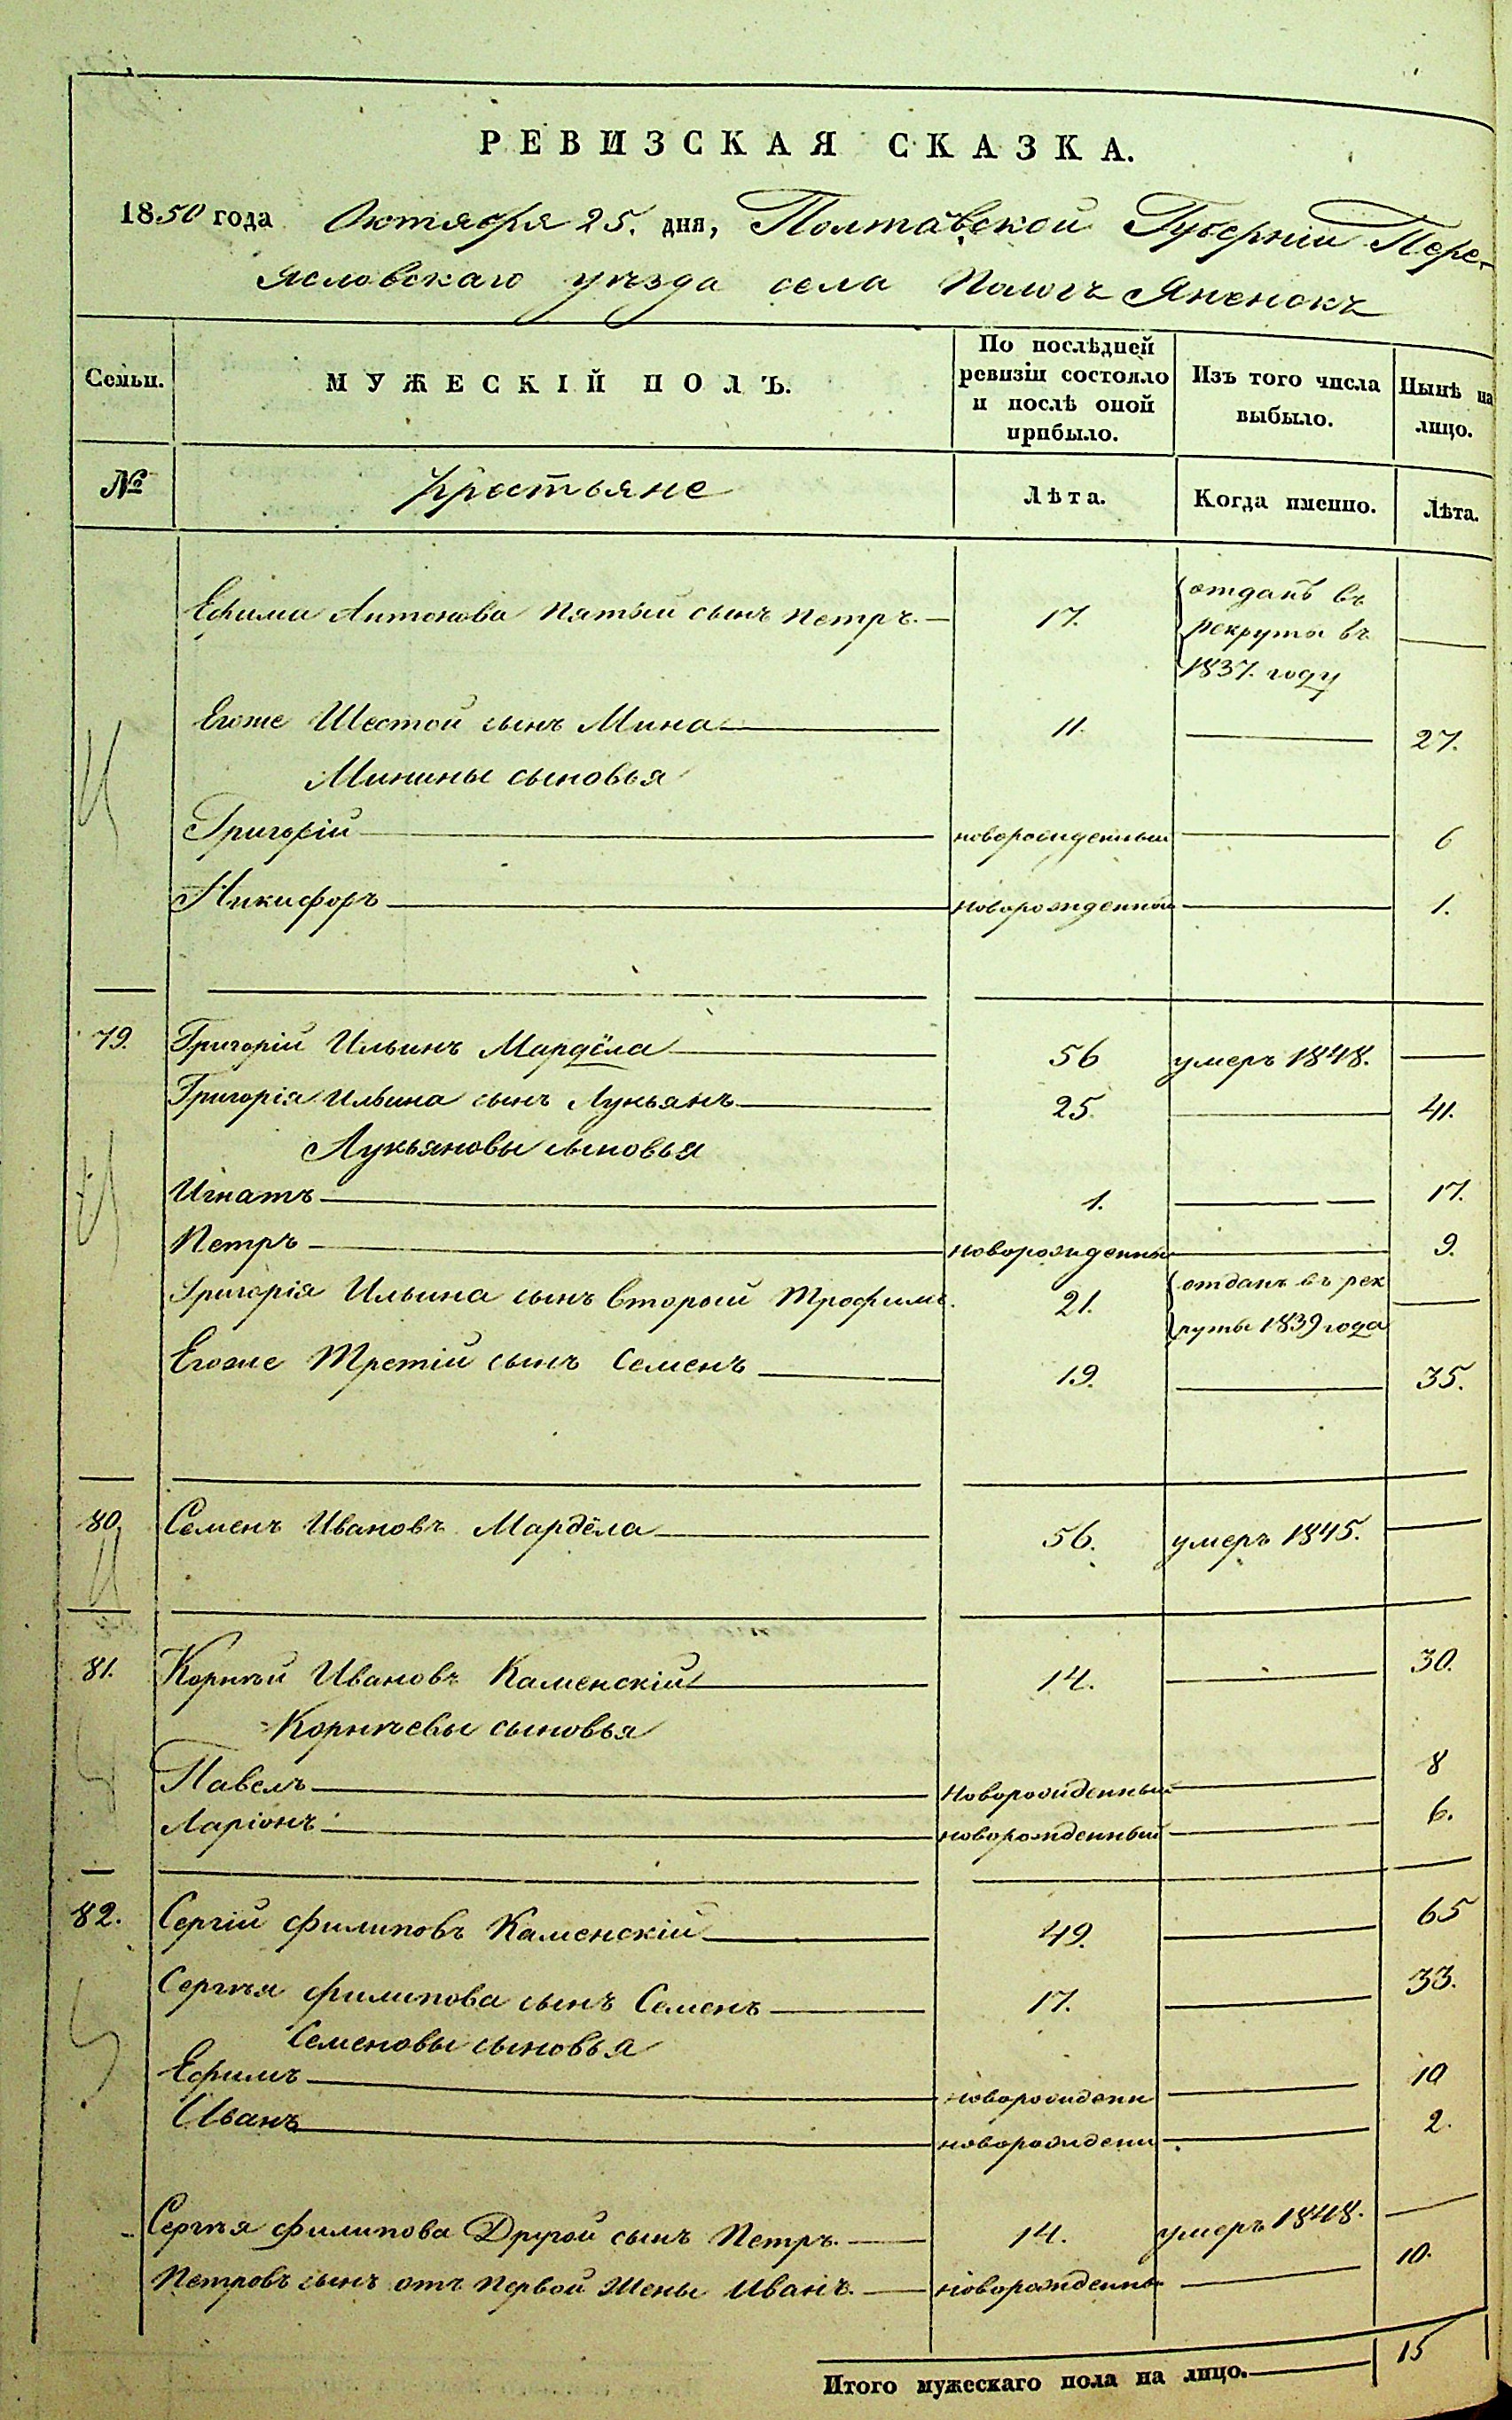 РЕВИЗСКАЯ СКАЗКА.
1850 года Октября 25. дня, Полтавской Губерніи Пере-
яславскаго уѣзда села Пологъ Яненокъ
Семьи.
МУЖЕСКІЙ ПОЛЪ.
По послѣдней
ревизіи состояло
и послѣ оной
прибыло.
Изъ того числа
выбыло.
Нынѣ на
лицо.
№
Крестьяне
Лѣта.
Когда именно.
Лѣта.
Ефима Антонова пятый сынъ Петръ. 17. отданъ въ
рекруты въ
1837. году
Егоже Шестой сынъ Мина 11. 27.
Минины сыновья
Григорій новорожденный 6
Никифоръ новорожденной 1.
79. Григорій Ильинъ Мардѣла 56 умеръ 1848.
Григорія Ильина сынъ Лукьянъ 25. 41.
Лукьяновы сыновья
Игнатъ 1. 17.
Петръ новорожденны 9.
Григорія Ильина сынъ второй Трофимъ. 21. отданъ въ рек
руты 1839 года
Егоже Третій сынъ Семенъ 19. 35.
80. Семенъ Ивановъ Мардѣла 56. умеръ 1845.
81. Корнѣй Ивановъ Каменскій 14. 30.
Корнѣевы сыновья
Павелъ Новорожденный 8
Ларіонъ новорожденный 6.
82. Сергій Филиповъ Каменскій 49. 65
Сергѣя Филипова сынъ Семенъ 17. 33.
Семеновы сыновья
Ефимъ новорожденн 10
Иванъ новорожденн 2.
Сергѣя Филипова Другой сынъ Петръ. 14. умеръ 1848.
Петровъ сынъ отъ первой Жены Иванъ. новорожденны 10.
Итого мужескаго пола на лицо. 15